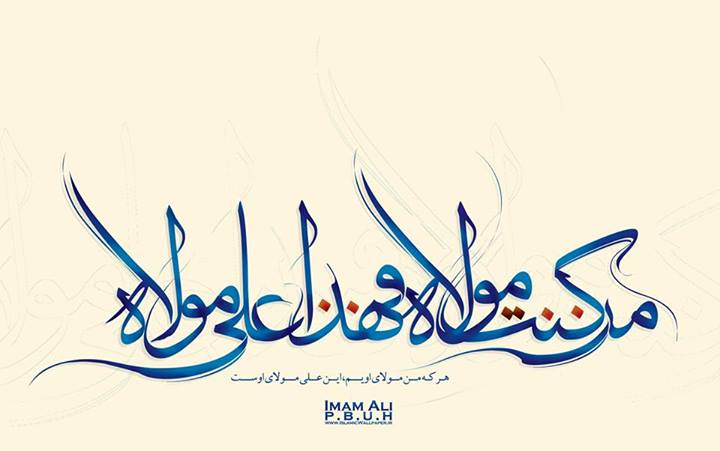 من كنت مولاه فهذا علي مولاه
هر که من مولای اویم، این علی مولای اوست
IMAM ALI
P.B.U.H
WWW.ISLAMICWALLPAPER.IR